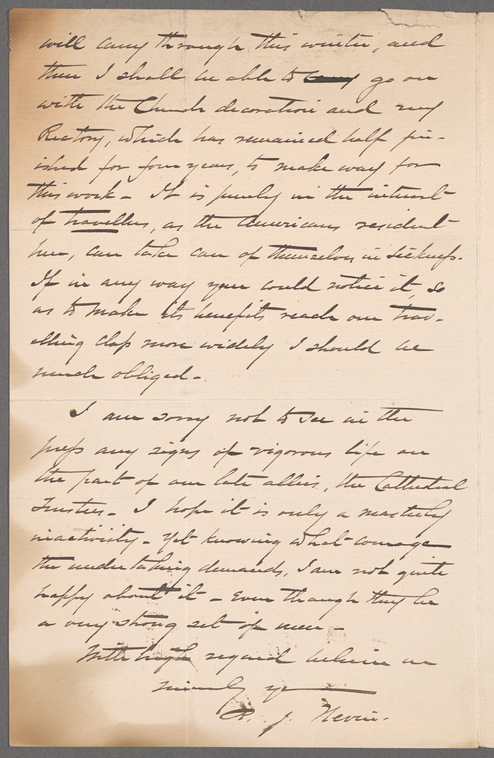 will carry through this winter, and
then I shall be able to carry go on
with the Church decoration and my
Rectory, which has remained half fin-
ished for four years, to make way for
this work - It is purely in the interest
of travellers, as the Americans resident
here, can take care of themselves in sickness.
If in any way you could notice it, so
as to make its benefits reach our trav-
elling class more widely I should be
much obliged -
I am sorry not to see in the
press any signs of vigorous life on
the part of our late allies, the Cathedral
Trustees - I hope it is only a masterly
inactivity - Yet knowing what courage
the undertaking demands, I am not quite
happy about it - Even though they be
a very strong set of men -
With high regard believe me
sincerely yrs
R. J. Nevin.